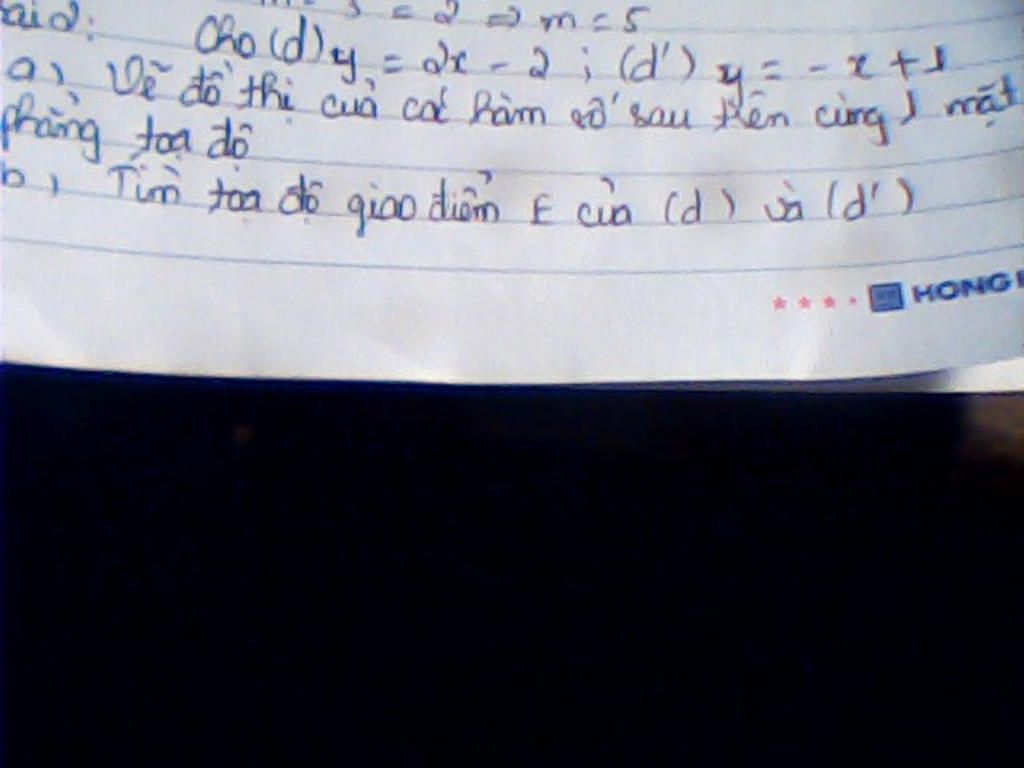 = 2 => m = 5
Bài 2: Cho (d) y = 2x - 2 ; (d') y = - x + 1
a, Vẽ đồ thị của các hàm số sau trên cùng 1 mặt
phẳng tọa độ
b, Tìm tọa độ giao điểm E của (d) và (d')
HONG